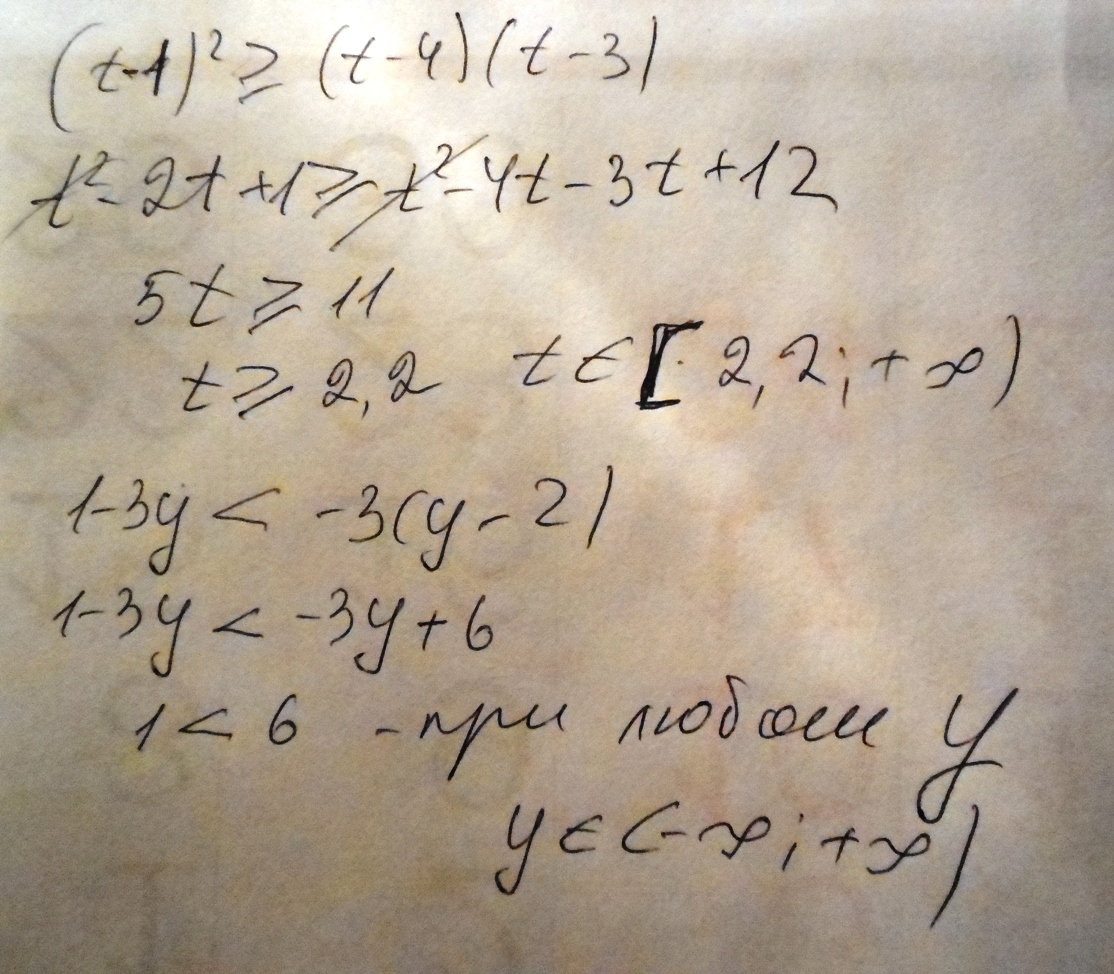 (t-1)² ≥ (t-4)(t-3)
t²-2t+1 ≥ t²-4t-3t+12
5t ≥ 11
t ≥ 2,2 t ∈ [2,2; +∞)
1-3y < -3(y-2)
1-3y < -3y+6
1 < 6 - при любом y
y ∈ (-∞; +∞)